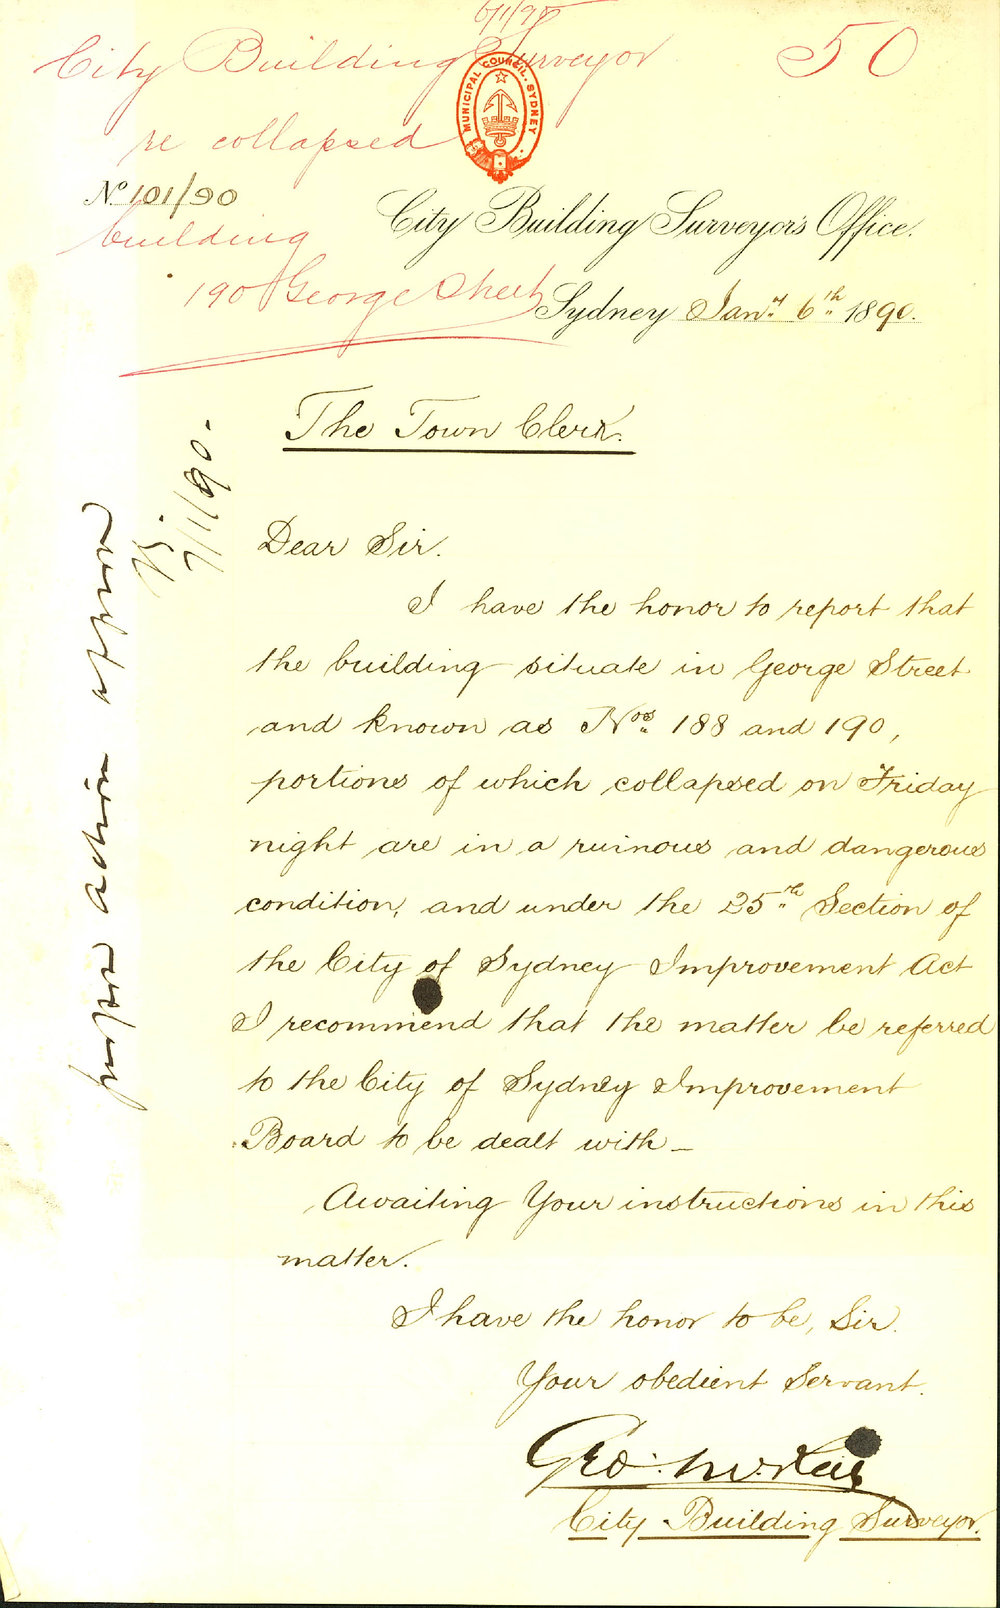 6/1/90
City Building Surveyor
50
re collapsed
MUNICIPAL COUNCIL. SYDNEY
No. 101/90
building
City Building Surveyor's Office.
190 George Street
Sydney Jany. 6th. 1890.
The Town Clerk.
Dear Sir.
I have the honor to report that
the building situate in George Street
and known as Nos. 188 and 190,
portions of which collapsed on Friday
night are in a ruinous and dangerous
condition, and under the 25th. Section of
the City of Sydney Improvement Act
I recommend that the matter be referred
to the City of Sydney Improvement
Board to be dealt with —
Awaiting Your instructions in this
matter.
I have the honor to be, Sir.
Your obedient Servant.
Geo.
City Building Surveyor.
action
7/1/90.